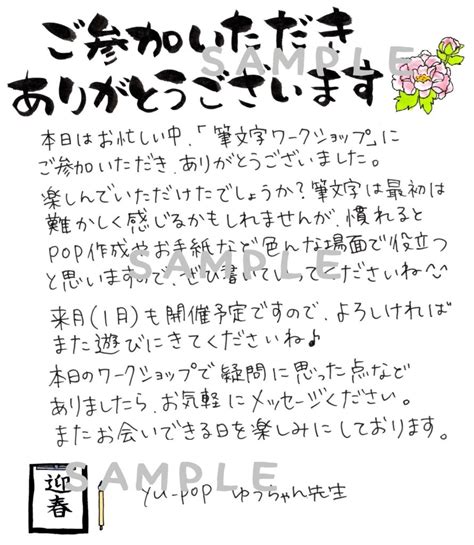 ご参加いただき
ありがとうございます
SAMPLE
本日はお忙しい中、「筆文字ワークショップ」に
ご参加いただき、ありがとうございました。
楽しんでいただけたでしょうか?筆文字は最初は
難かしく感じるかもしれませんが、慣れると
POP作成やお手紙など色んな場面で役立つ
と思いますので、ぜひ書いていってくださいね
SAMPLE
来月(1月)も開催予定ですので、よろしければ
また遊びにきてくださいね♪
本日のワークショップで疑問に思った点など
ありましたら、お気軽にメッセージください。
またお会いできる日を楽しみにしております。
SAMPLE
迎春
yu-pop ゆうちゃん先生